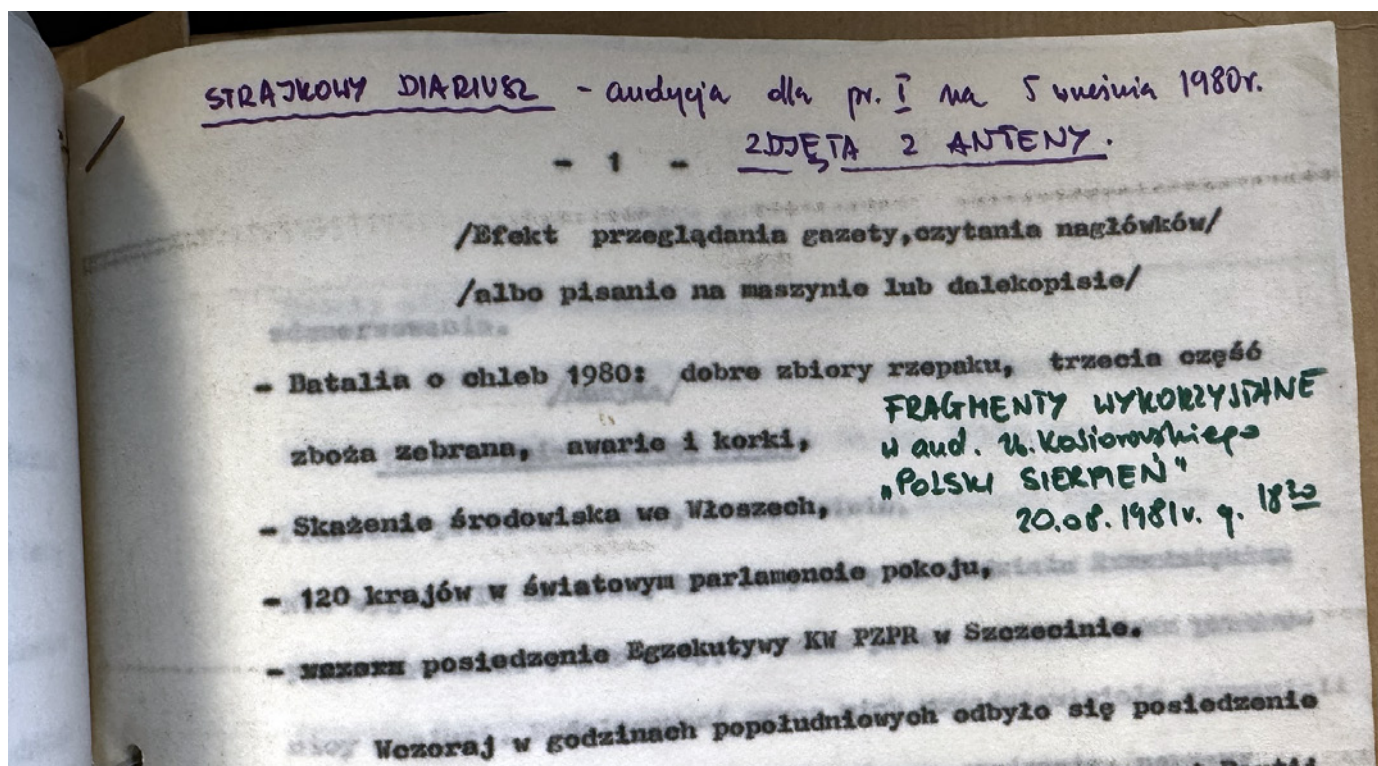 STRAJKOWY DIARIUSZ - audycja dla pr. I na 5 września 1980r.
- 1 - ZDJĘTA Z ANTENY.
/Efekt przeglądania gazety,czytania nagłówków/
/albo pisanie na maszynie lub dalekopisie/
- Batalia o chleb 1980: dobre zbiory rzepaku, trzecia część
zboża zebrana, awarie i korki,
FRAGMENTY WYKORZYSTANE
w aud. Z. Kosiorowskiego
"POLSKI SIERPIEŃ"
20.08.1981r. g. 18³⁰
- Skażenie środowiska we Włoszech,
- 120 krajów w światowym parlamencie pokoju,
- posiedzenie Egzekutywy KW PZPR w Szczecinie.
Wczoraj w godzinach popołudniowych odbyło się posiedzenie